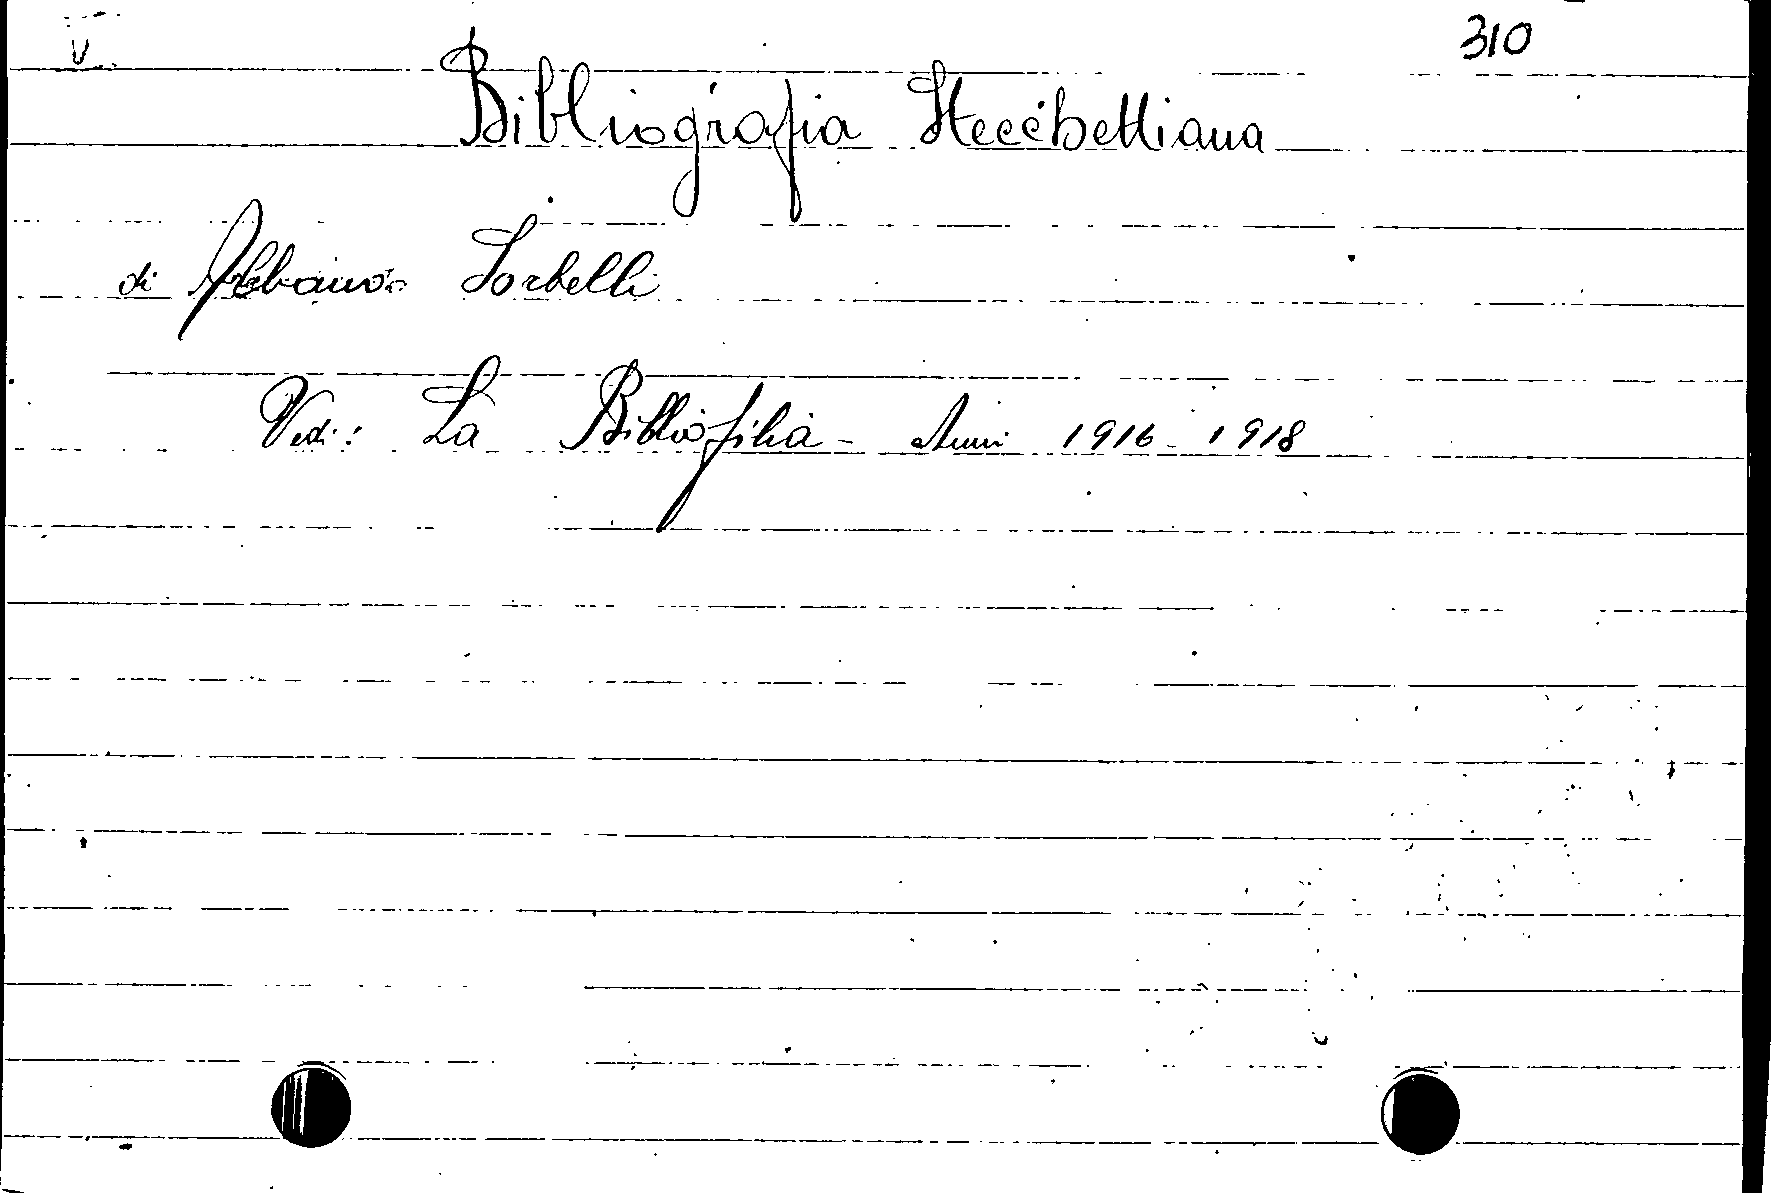 V. 310
Bibliografia Stecchettiana
di Albano Sorbelli
Vedi: La Bibliofilia - Anni 1916-1918